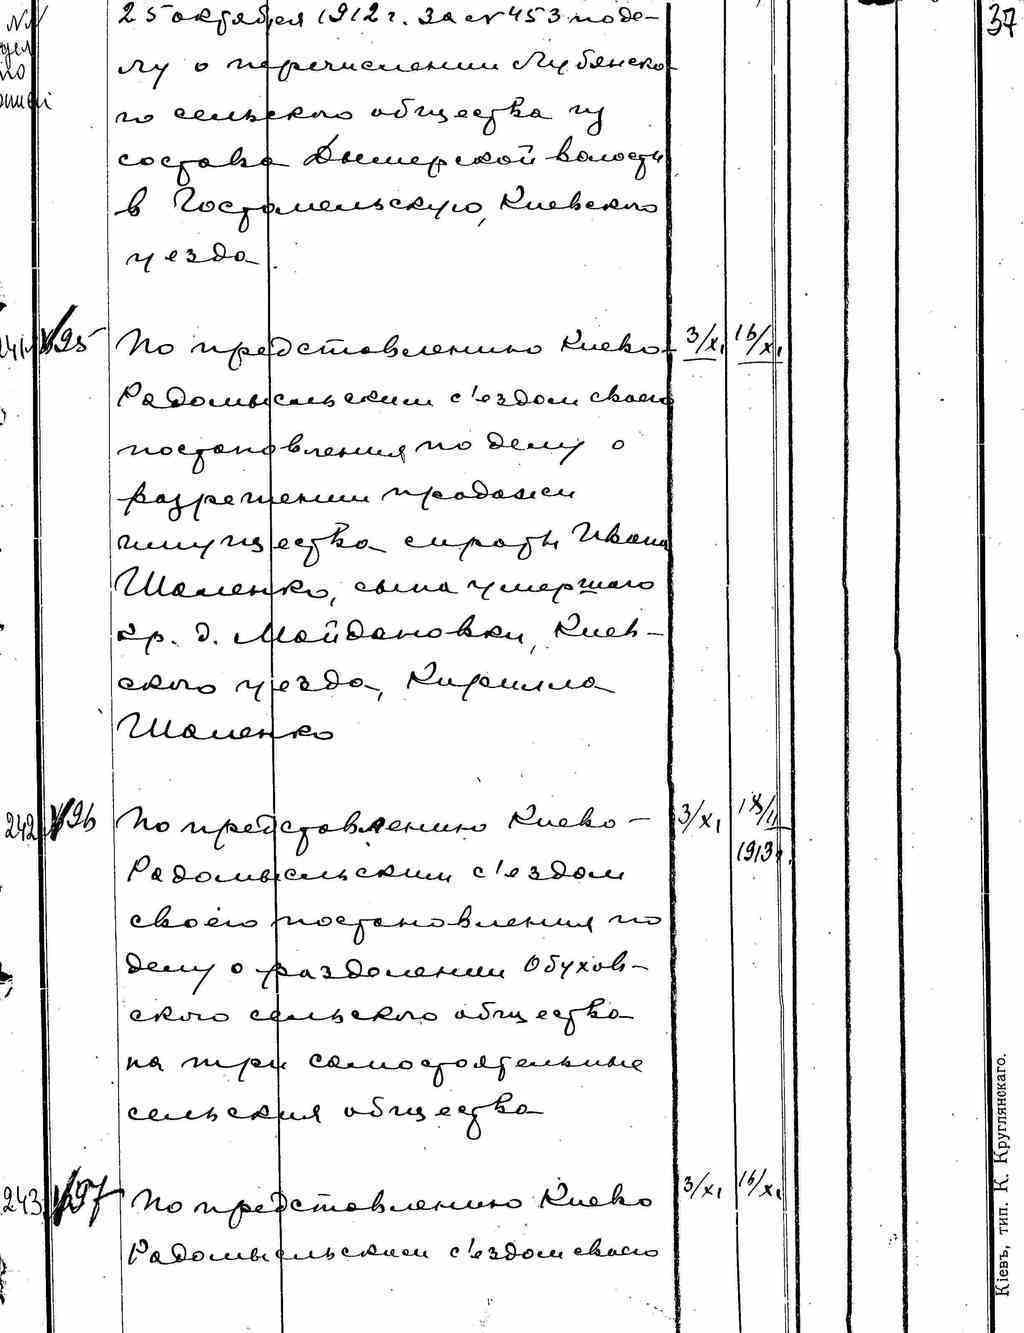 37
25 октября 1912 г. за № 453 по де-
лу о перечислении Лубянско-
го сельского общества из
состава Дымерской волости
в Гостомельскую, Киевского
уезда.
241 95 По представлению Киево- 3/XI 16/XI
Радомысльским с'ездом своего
постановления по делу о
разрешении продажи
имущества сироты Ивана
Шаленко, сына умершаго
кр. д. Майдановки, Киев-
ского уезда, Кирилла
Шаленко
242 96 По представлению Киево- 3/XI 18/II 1913 г.
Радомысльским с'ездом
своего постановления по
делу о раздолении Обухов-
ского сельского общества
на три самостоятельные
сельския общества
243 97 По представлению Киево 3/XI 16/XI
Радомысльским с'ездом своего
Кіевъ, тип. К. Круглянскаго.